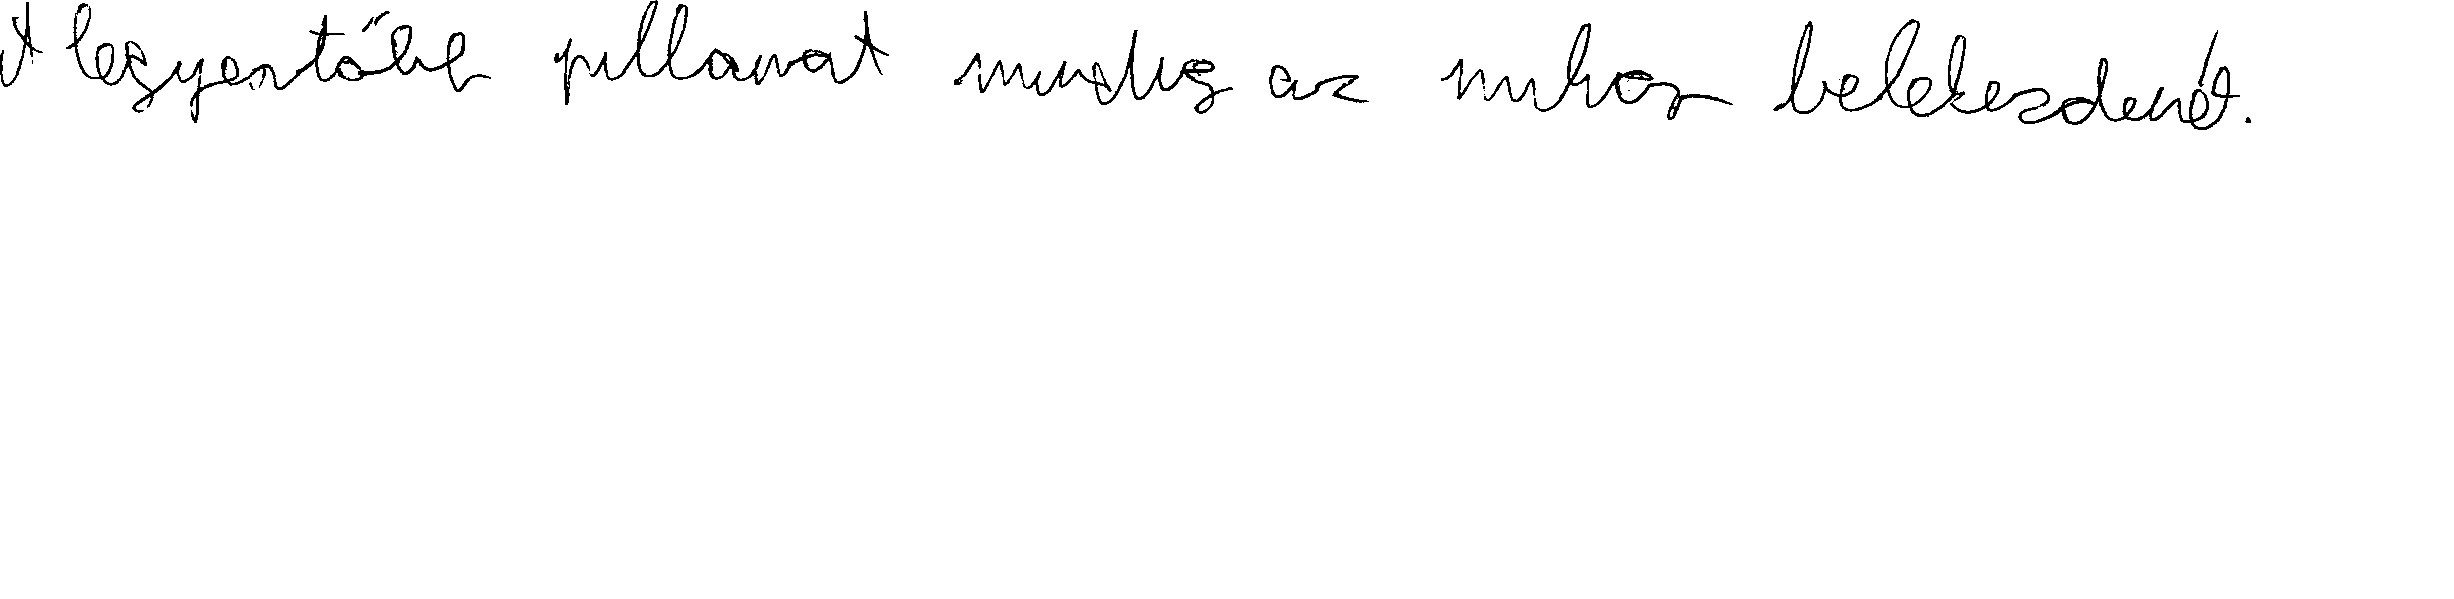 A legyentőbb pillanat mindig az mikor belekezdenél.